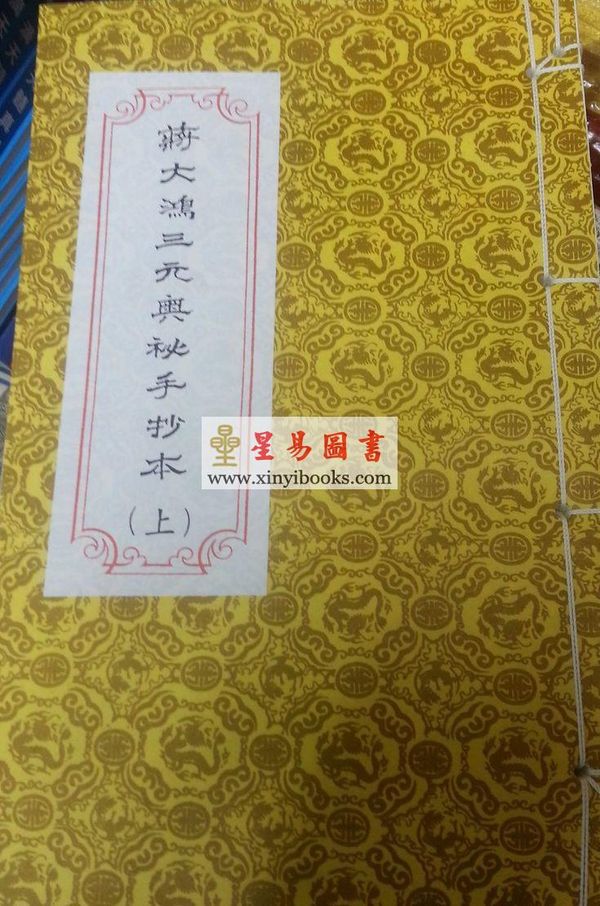 蔣大鴻三元奧祕手抄本
（上）
星易圖書
www.xinyibooks.com